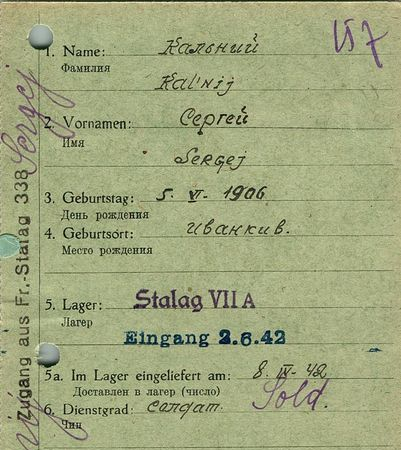 VII 7
1. Name: Кальний
Фамилия
Kal'nij
2. Vornamen: Сергей
Имя
Sergej
3. Geburtstag: 5. VI- 1906
День рождения
4. Geburtsort: Иванкив.
Место рождения
5. Lager: Stalag VII A
Лагерь
Eingang 2.6.42
5a. Im Lager eingeliefert am: 8. IV- 42
Доставлен в лагерь (число)
6. Dienstgrad: солдат. Sold.
Чин
Zugang aus Fr.-Stalag 338
Sergej